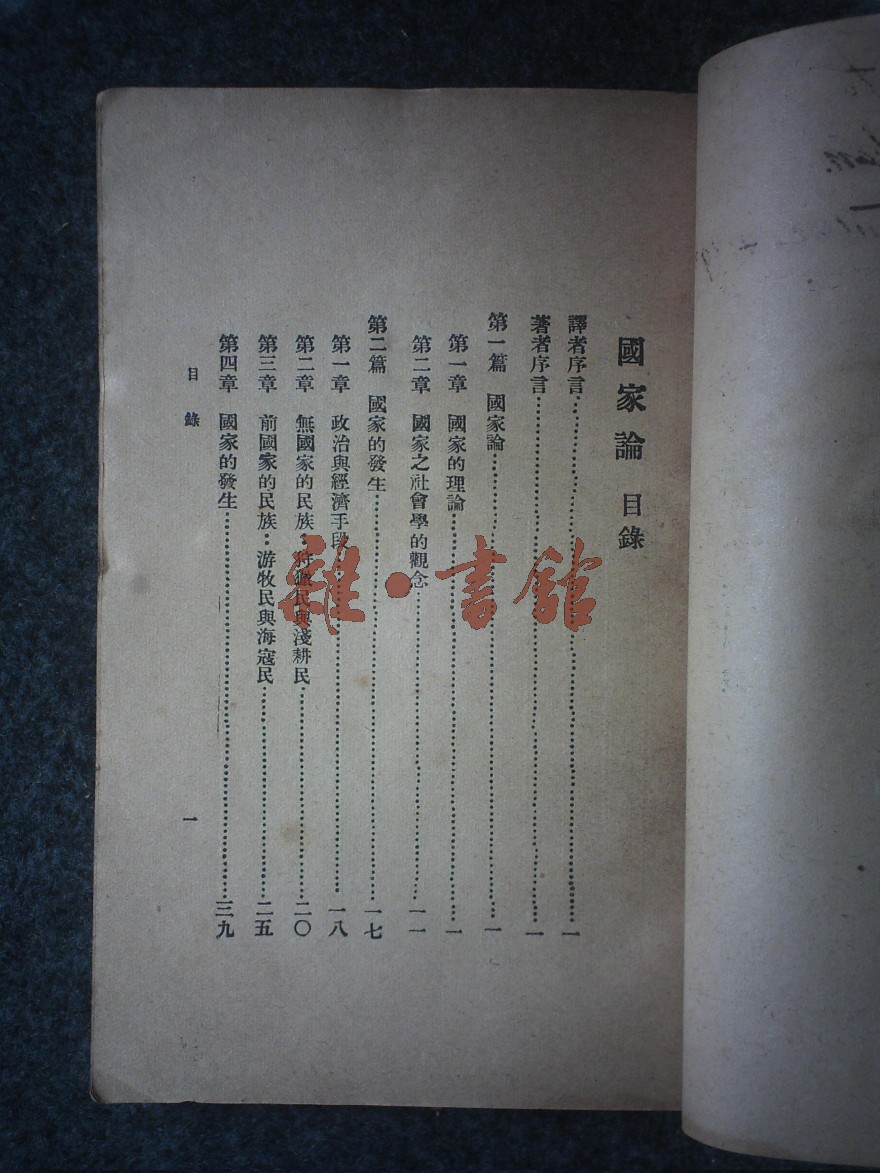 國家論 目錄
譯者序言……一
著者序言……一
第一篇 國家論……一
第一章 國家的理論……一
第二章 國家之社會學的觀念……一一
第二篇 國家的發生……一七
第一章 政治與經濟手段……一八
第二章 無國家的民族：狩獵民與淺耕民……二〇
第三章 前國家的民族：游牧民與海寇民……二五
第四章 國家的發生……三九
目錄
一
雜·書館